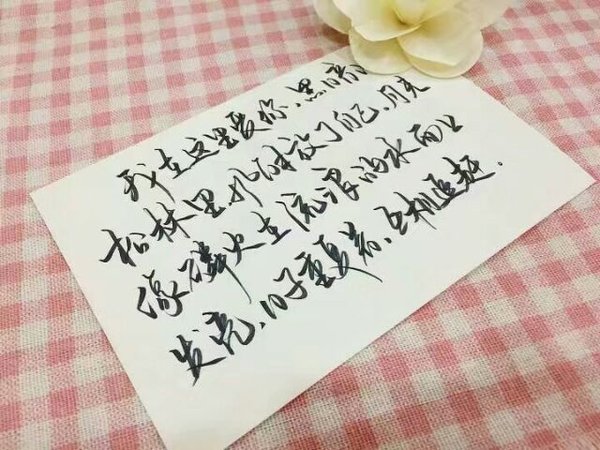 我在这里爱你、黑暗
松林里风解放了自己、月亮
像磷火在流浪的水面上
发亮、日子重复着、互相追赶.